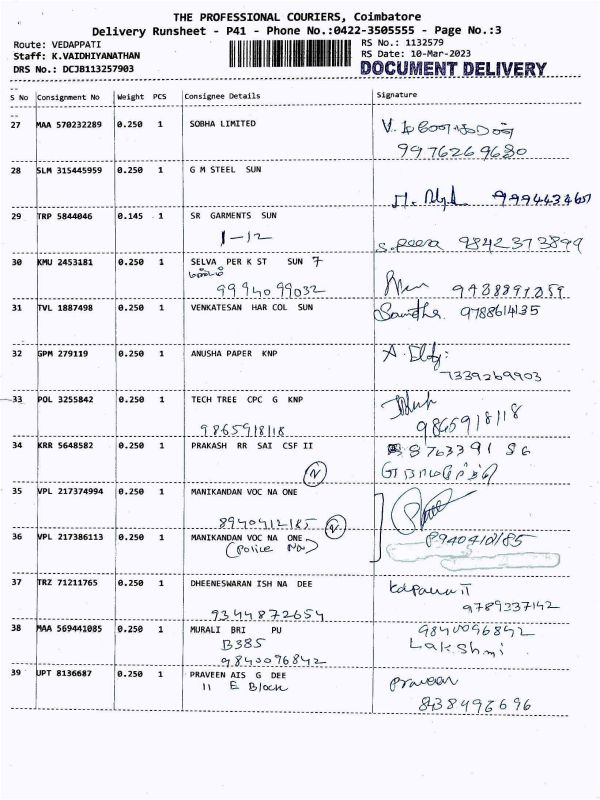 THE PROFESSIONAL COURIERS, Coimbatore
Delivery Runsheet - P41 - Phone No.:0422-3505555 - Page No.:3
Route: VEDAPPATI RS No.: 1132579
Staff: K.VAIDHIYANATHAN RS Date: 10-Mar-2023
DRS No.: DCJB113257903 DOCUMENT DELIVERY
S No Consignment No Weight PCS Consignee Details Signature
27 MAA 570232289 0.250 1 SOBHA LIMITED
9976269680
28 SLM 315445959 0.250 1 G M STEEL SUN
29 TRP 5844046 0.145 1 SR GARMENTS SUN
1-12 9842373899
30 KMU 2453181 0.250 1 SELVA PER K ST SUN 7
9994099032
31 TVL 1887498 0.250 1 VENKATESAN HAR COL SUN 9788614135
32 GPM 279119 0.250 1 ANUSHA PAPER KNP
7339269903
33 POL 3255842 0.250 1 TECH TREE CPC G KNP
9865918118 9865918118
34 KRR 5648582 0.250 1 PRAKASH RR SAI CSF II
N
35 VPL 217374994 0.250 1 MANIKANDAN VOC NA ONE
8940412185 N
36 VPL 217386113 0.250 1 MANIKANDAN VOC NA ONE
(Police Na)
37 TRZ 71211765 0.250 1 DHEENESWARAN ISH NA DEE
9344872654 9789337142
38 MAA 569441085 0.250 1 MURALI BRI PU 9840096842
B385 Lakshmi
9840096842
39 UPT 8136687 0.250 1 PRAVEEN AIS G DEE Praveen
11 E Block 8438496696